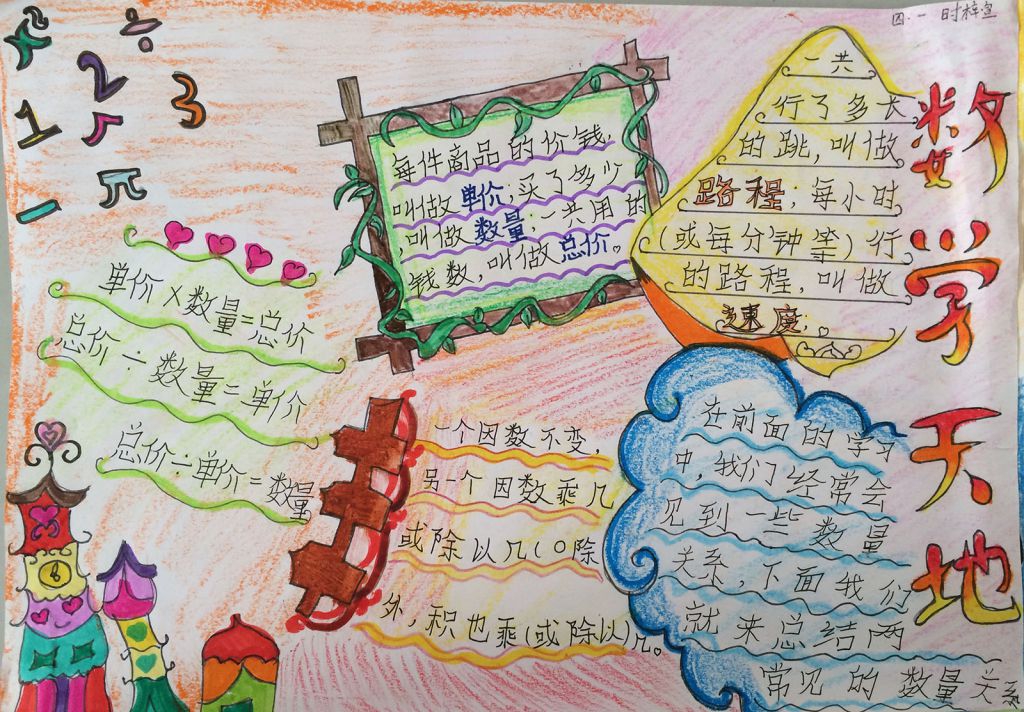 四.一 时梓宣
数学天地
÷
2
3
1
π
每件商品的价钱,
叫做单价;买了多少
叫做数量;一共用的
钱数,叫做总价。
一共
行了多长
的跳,叫做
路程;每小时
(或每分钟等)行
的路程,叫做
速度;。
单价×数量=总价
总价÷数量=单价
总价÷单价=数量
一个因数不变,
另一个因数乘几
或除以几(0除
外,积也乘(或除以)几。
在前面的学习
中,我们经常会
见到一些数量
关系,下面我们
就来总结两
常见的数量关系